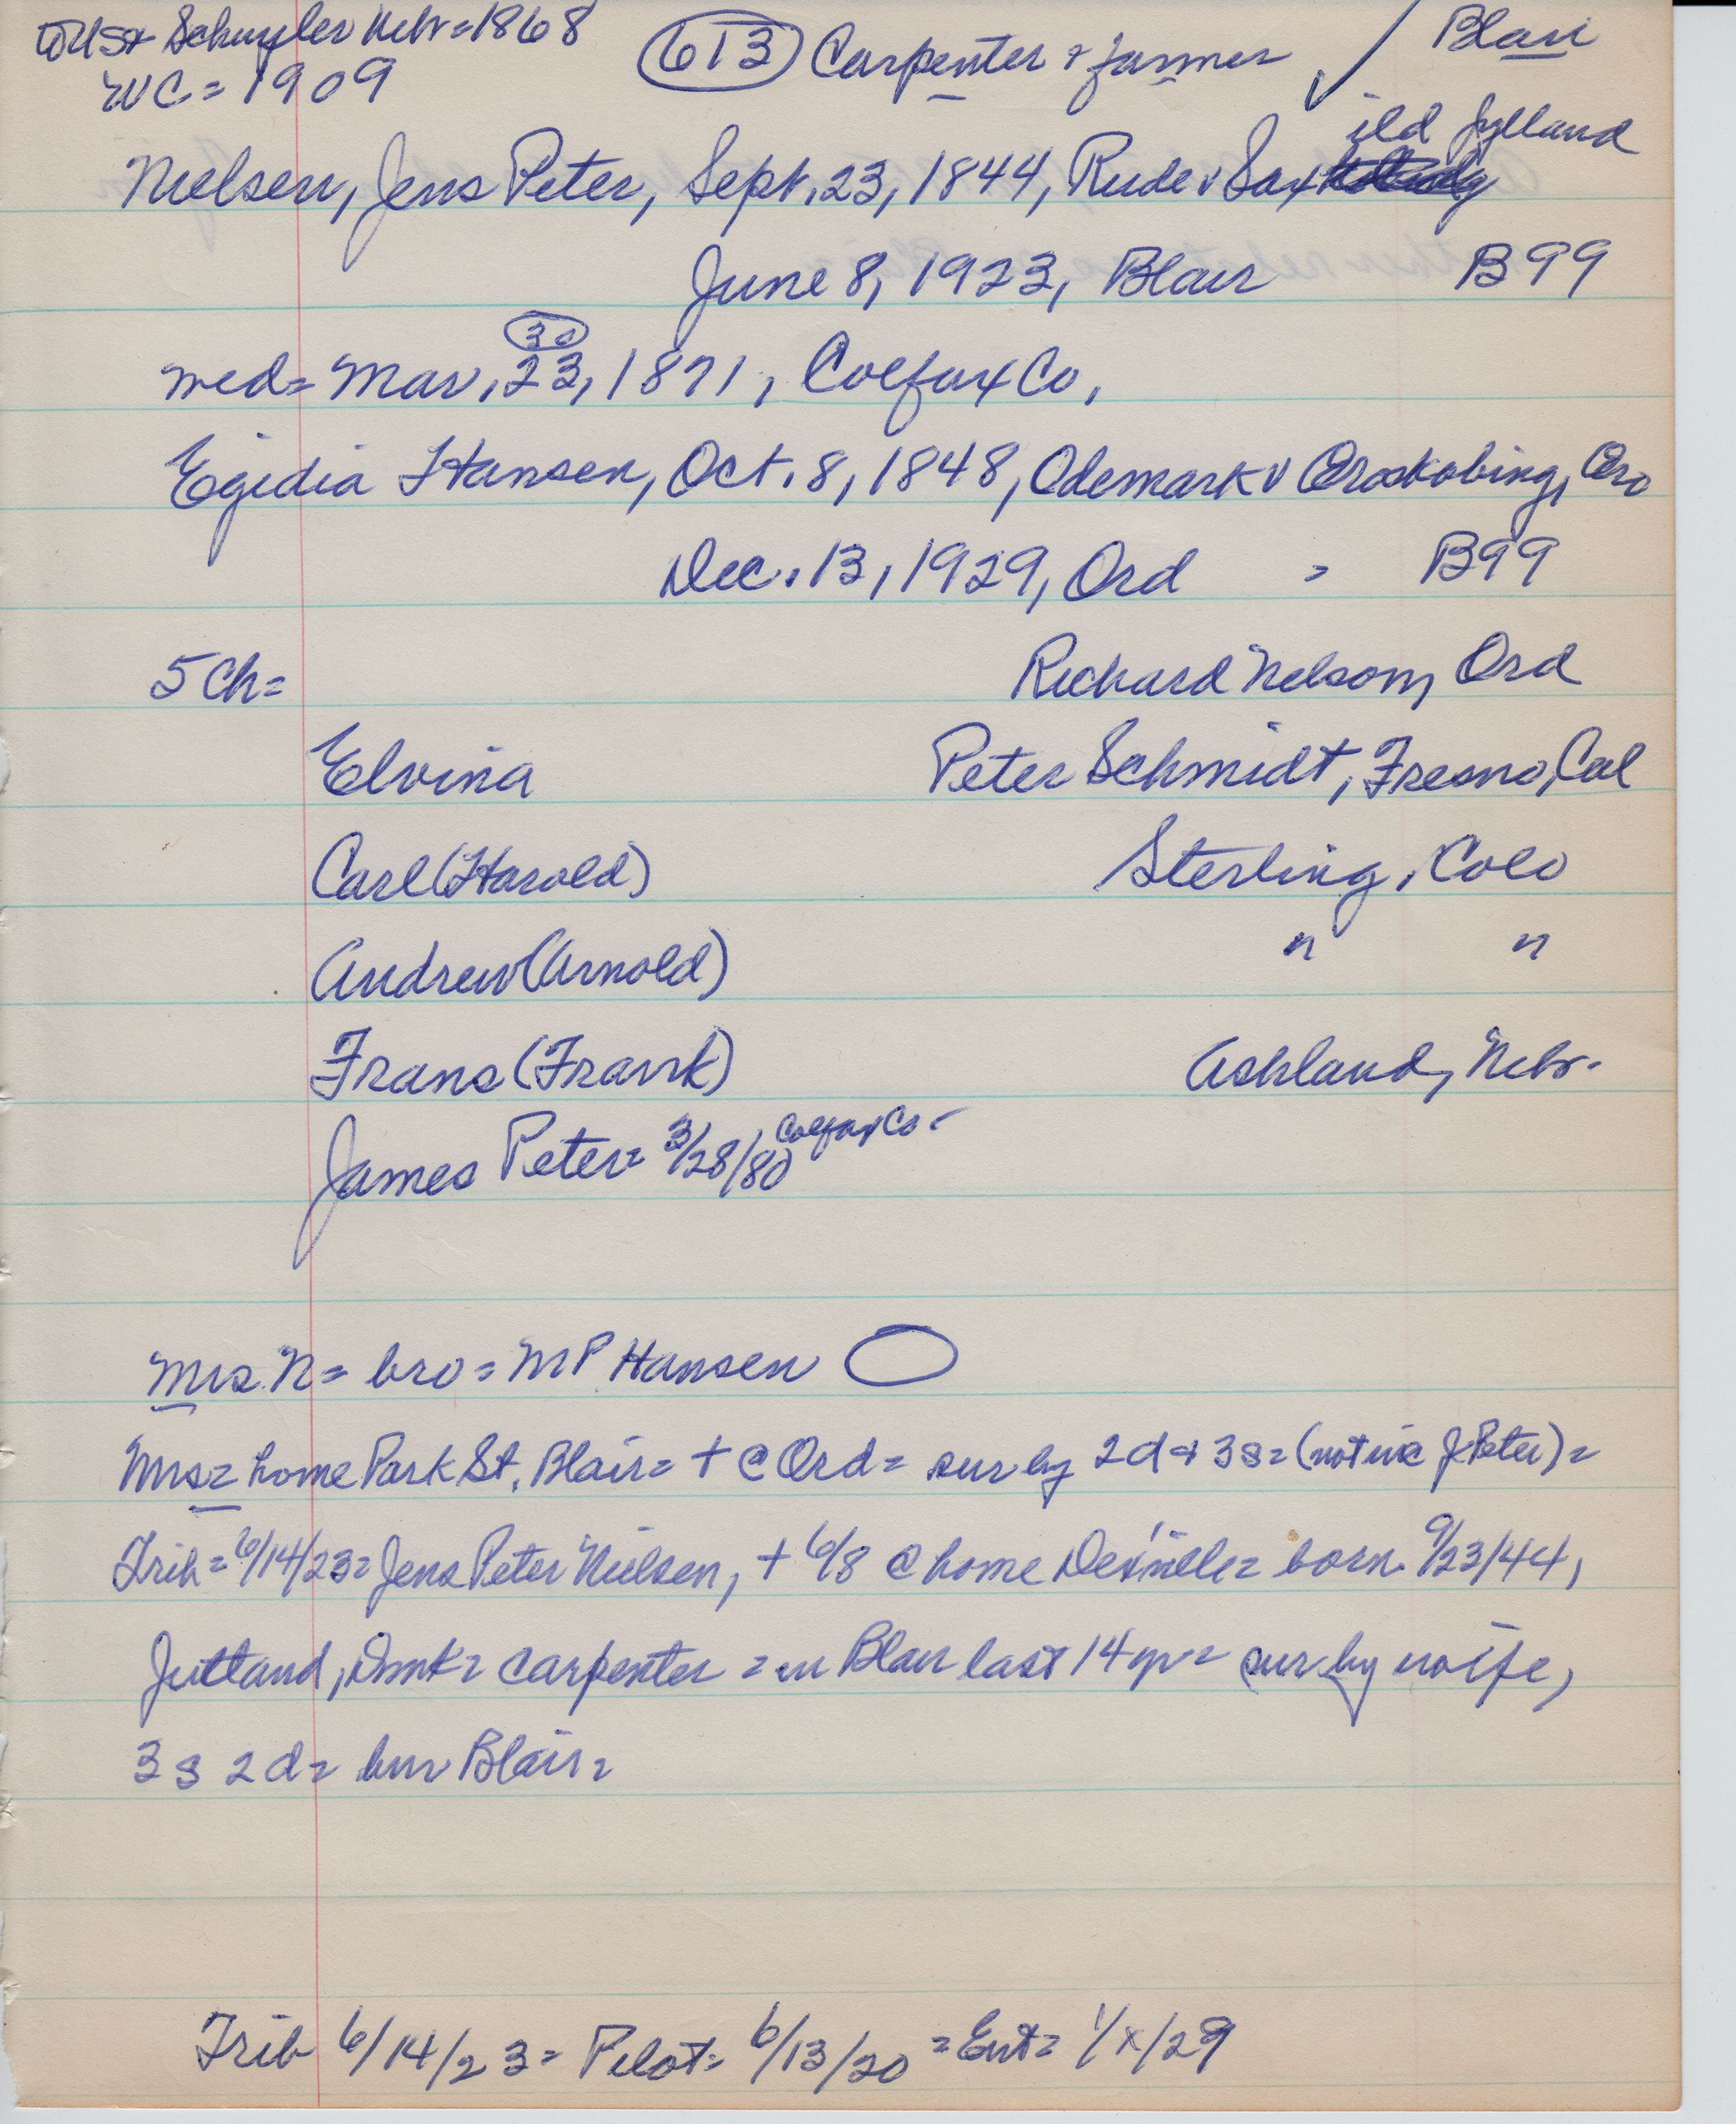 US + Schuyler Nebr = 1868
WC = 1909
613 Carpenter & farmer Blair
ild Jylland
Nielsen, Jens Peter, Sept. 23, 1844, Rude v Sax
June 8, 1923, Blair B99
30
med = Mar. 23, 1871, Colfax Co,
Egidia Hansen, Oct. 8, 1848, Odemark v Æroskobing, Æro
Dec. 13, 1929, Ord = B99
5 Ch = Richard Nelson, Ord
Elvina Peter Schmidt, Fresno, Cal
Carl (Harold) Sterling, Colo
Andrew (Arnold) " "
Frans (Frank) Ashland, Nebr.
James Peter = 3/28/80 Colfax Co -
Mrs. N = bro = MP Hansen
Mrs = home Park St. Blair = + @ Ord = sur by 2d + 3s = (not inc J Peter) =
Trib = 6/14/23 = Jens Peter Nielsen, + 6/8 @ home = born 9/23/44,
Jutland, Dmk = carpenter = in Blair last 14 yr = sur by wife,
3s 2d = bur Blair =
Trib 6/14/23 = Pilot = 6/13/20 = Ent = 1/x/29